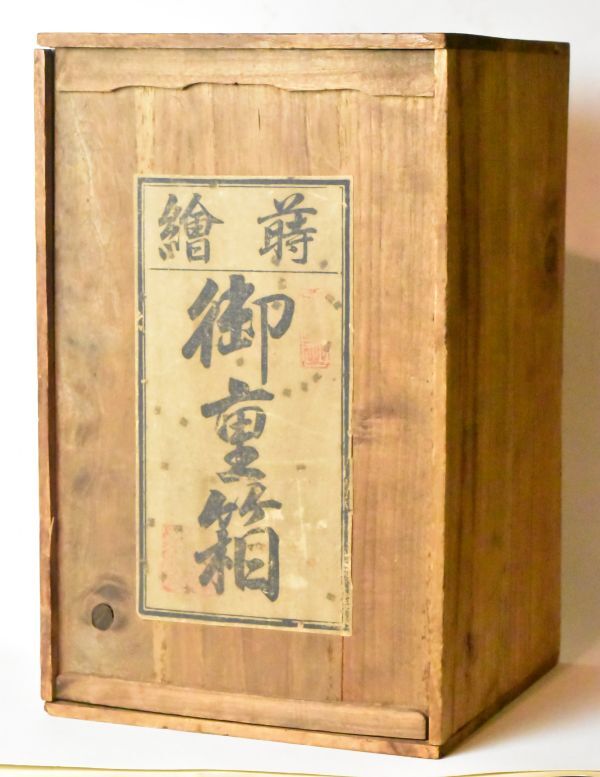 蒔繪
御重箱